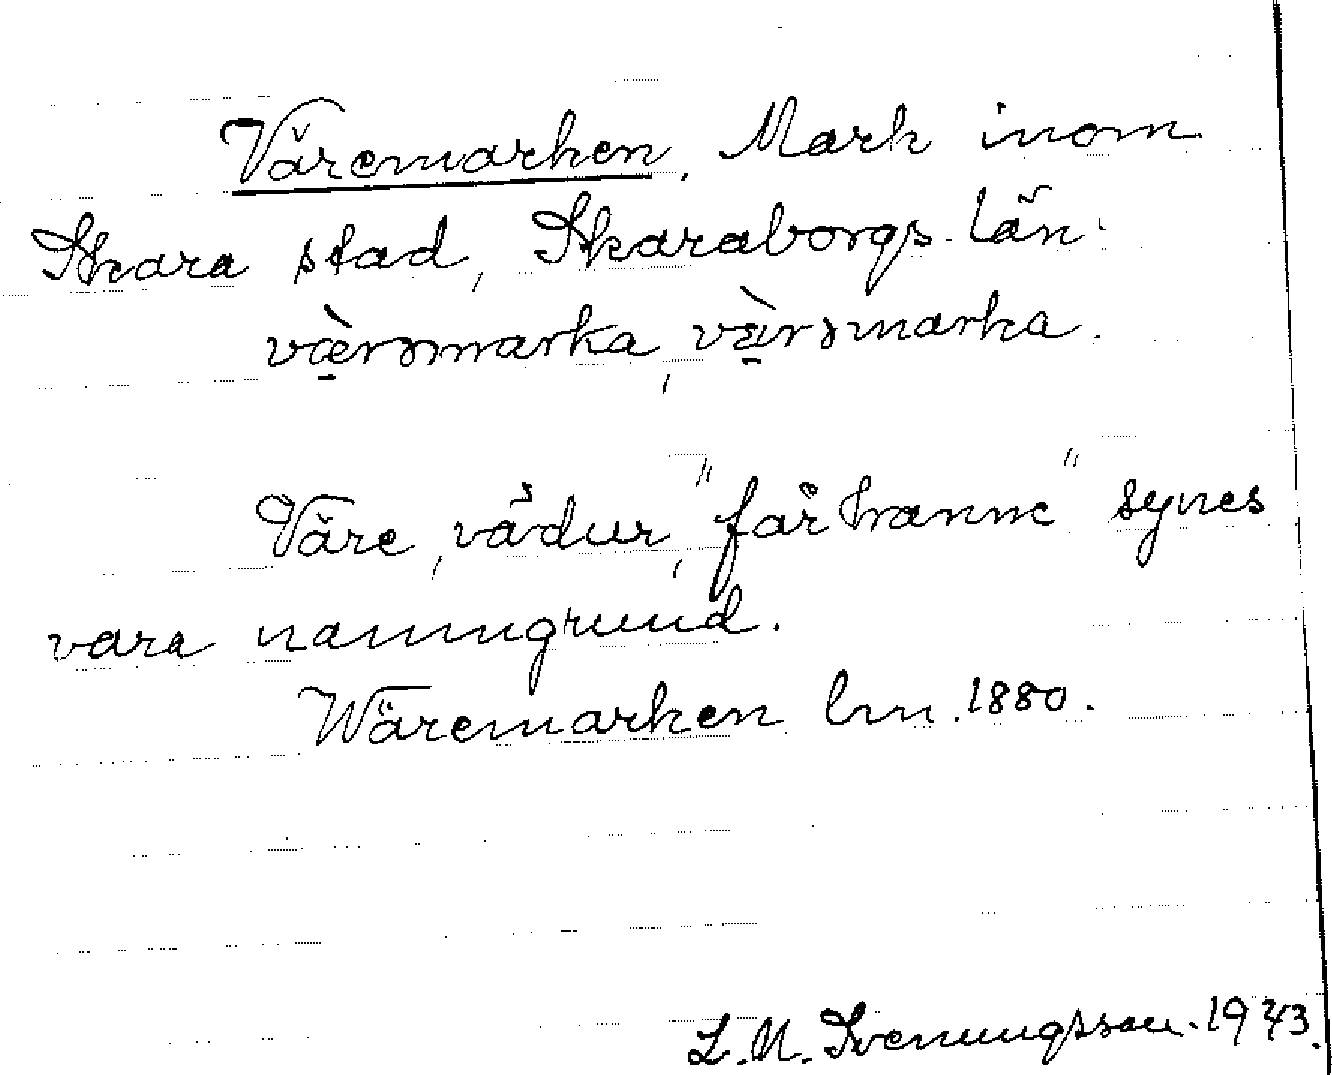 Väremarken. Mark inom
Skara stad, Skaraborgs län.
væ̀rəmarka, væ̀rəmarka.
Väre, vädur, "får hanne" synes
vara namngrund.
Wäremarken lm. 1880.
L. M. Svenungsson. 1933.